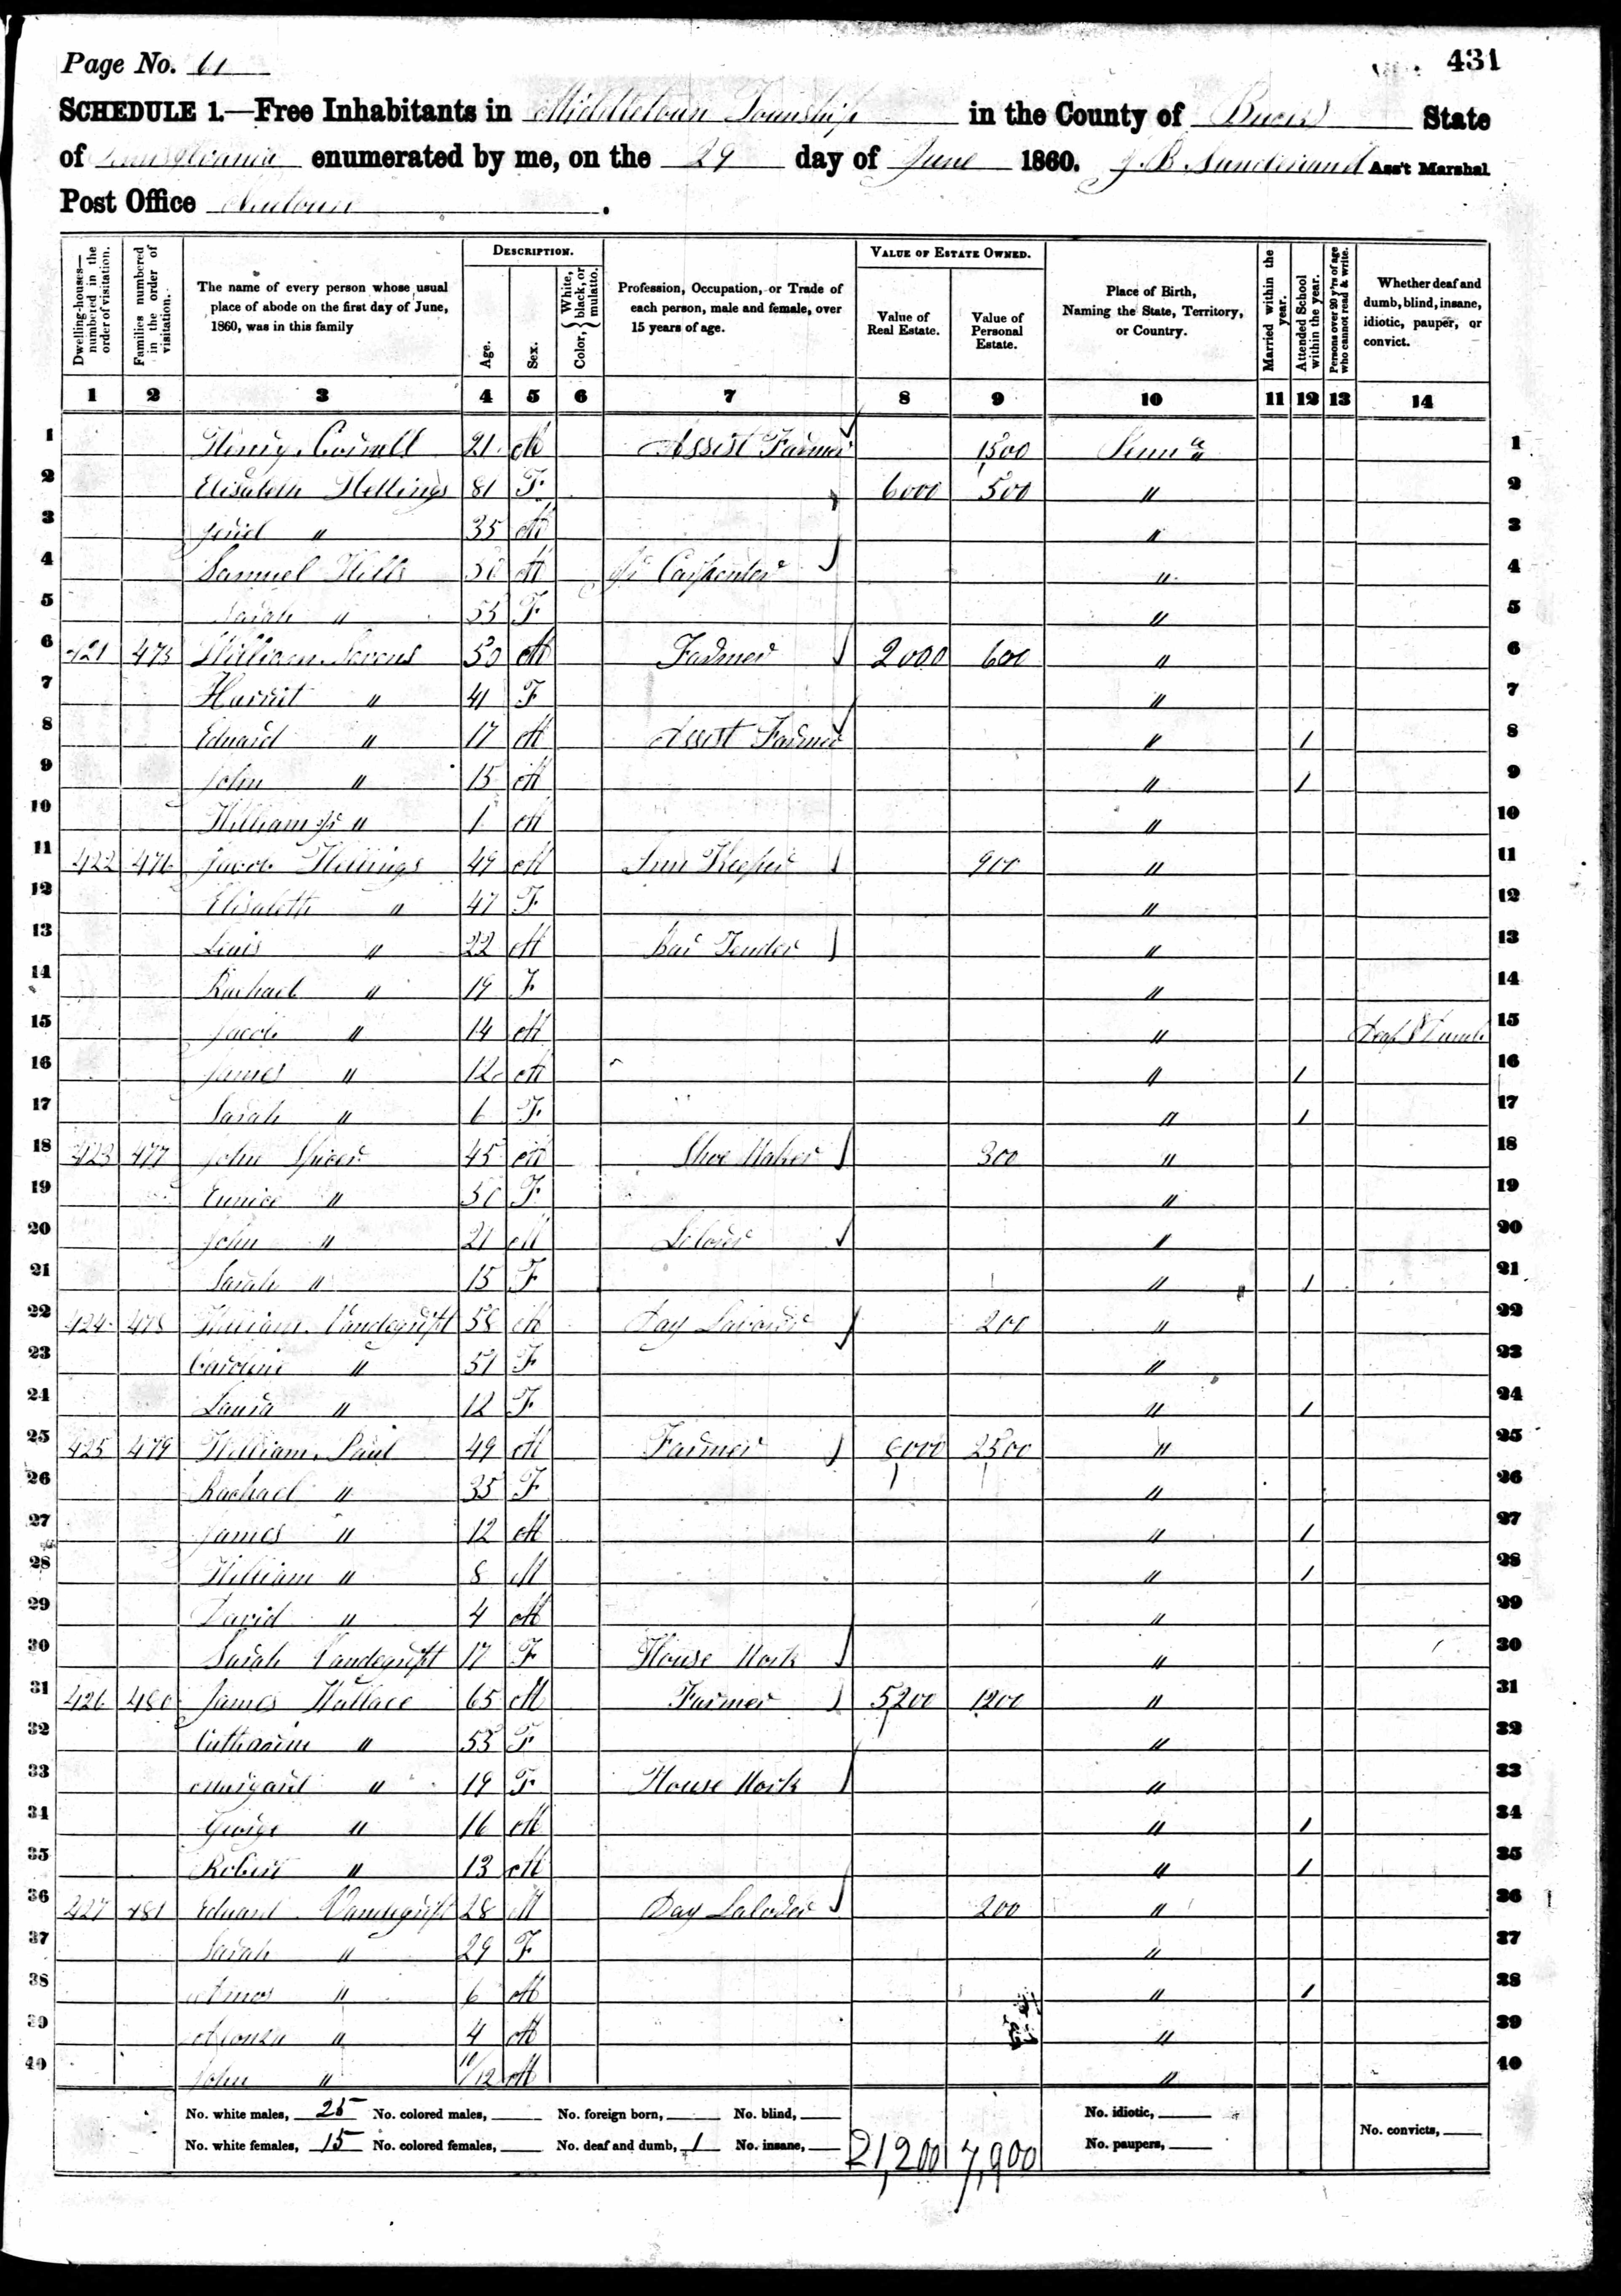 Page No. 61
431
SCHEDULE 1.—Free Inhabitants in Middletown Township in the County of Bucks State
of Pennsylvania enumerated by me, on the 29 day of June 1860. J. B. Sunderland Ass't Marshal
Post Office
Dwelling-houses—numbered in the order of visitation.
Families numbered in the order of visitation.
The name of every person whose usual place of abode on the first day of June, 1860, was in this family
DESCRIPTION.
Age.
Sex.
Color, { White, black, or mulatto.
Profession, Occupation, or Trade of each person, male and female, over 15 years of age.
VALUE OF ESTATE OWNED.
Value of Real Estate.
Value of Personal Estate.
Place of Birth, Naming the State, Territory, or Country.
Married within the year.
Attended School within the year.
Persons over 20 y'rs of age who cannot read & write.
Whether deaf and dumb, blind, insane, idiotic, pauper, or convict.
1 2 3 4 5 6 7 8 9 10 11 12 13 14
1 Henry Cornell 21 M Assist Farmer 1500 Penn a 1
2 Elisabeth Hellings 81 F 6000 500 " 2
3 " 35 M " 3
4 Samuel 50 M Carpenter " 4
5 Sarah " 55 F " 5
6 421 475 William 50 M Farmer 2000 600 " 6
7 Harriet " 41 F " 7
8 Edward " 17 M Assist Farmer " 1 8
9 John " 15 M " 1 9
10 William Jr " 1 M " 10
11 422 476 Jacob Hellings 49 M Inn Keeper 900 " 11
12 Elisabeth " 47 F " 12
13 Lewis " 22 M Bar Tender " 13
14 Rachael " 19 F " 14
15 Jacob " 14 M " Deaf & Dumb 15
16 James " 12 M " 1 16
17 Sarah " 6 F " 1 17
18 423 477 John Spicer 45 M Shoe Maker 300 " 18
19 Eunice " 50 F " 19
20 John " 21 M Laborer " 20
21 Sarah " 15 F " 1 21
22 424 478 William Vandegrift 58 M Day Laborer 200 " 22
23 Caroline " 51 F " 23
24 Laura " 12 F " 1 24
25 425 479 William Paul 49 M Farmer 8000 2500 " 25
26 Rachael " 35 F " 26
27 James " 12 M " 1 27
28 William " 8 M " 1 28
29 David " 4 M " 29
30 Sarah Vandegrift 17 F House Work " 30
31 426 480 James Wallace 65 M Farmer 5200 1200 " 31
32 Catharine " 53 F " 32
33 Margaret " 19 F House Work " 33
34 George " 16 M " 1 34
35 Robert " 13 M " 1 35
36 427 481 Edward Vandegrift 28 M Day Laborer 200 " 36
37 Sarah " 29 F " 37
38 Amos " 6 M " 1 38
39 Alonzo " 4 M " 39
40 John " 10/12 M " 40
No. white males, 25 No. colored males, No. foreign born, No. blind, No. idiotic,
No. white females, 15 No. colored females, No. deaf and dumb, 1 No. insane, 21,200 7,900 No. paupers, No. convicts,